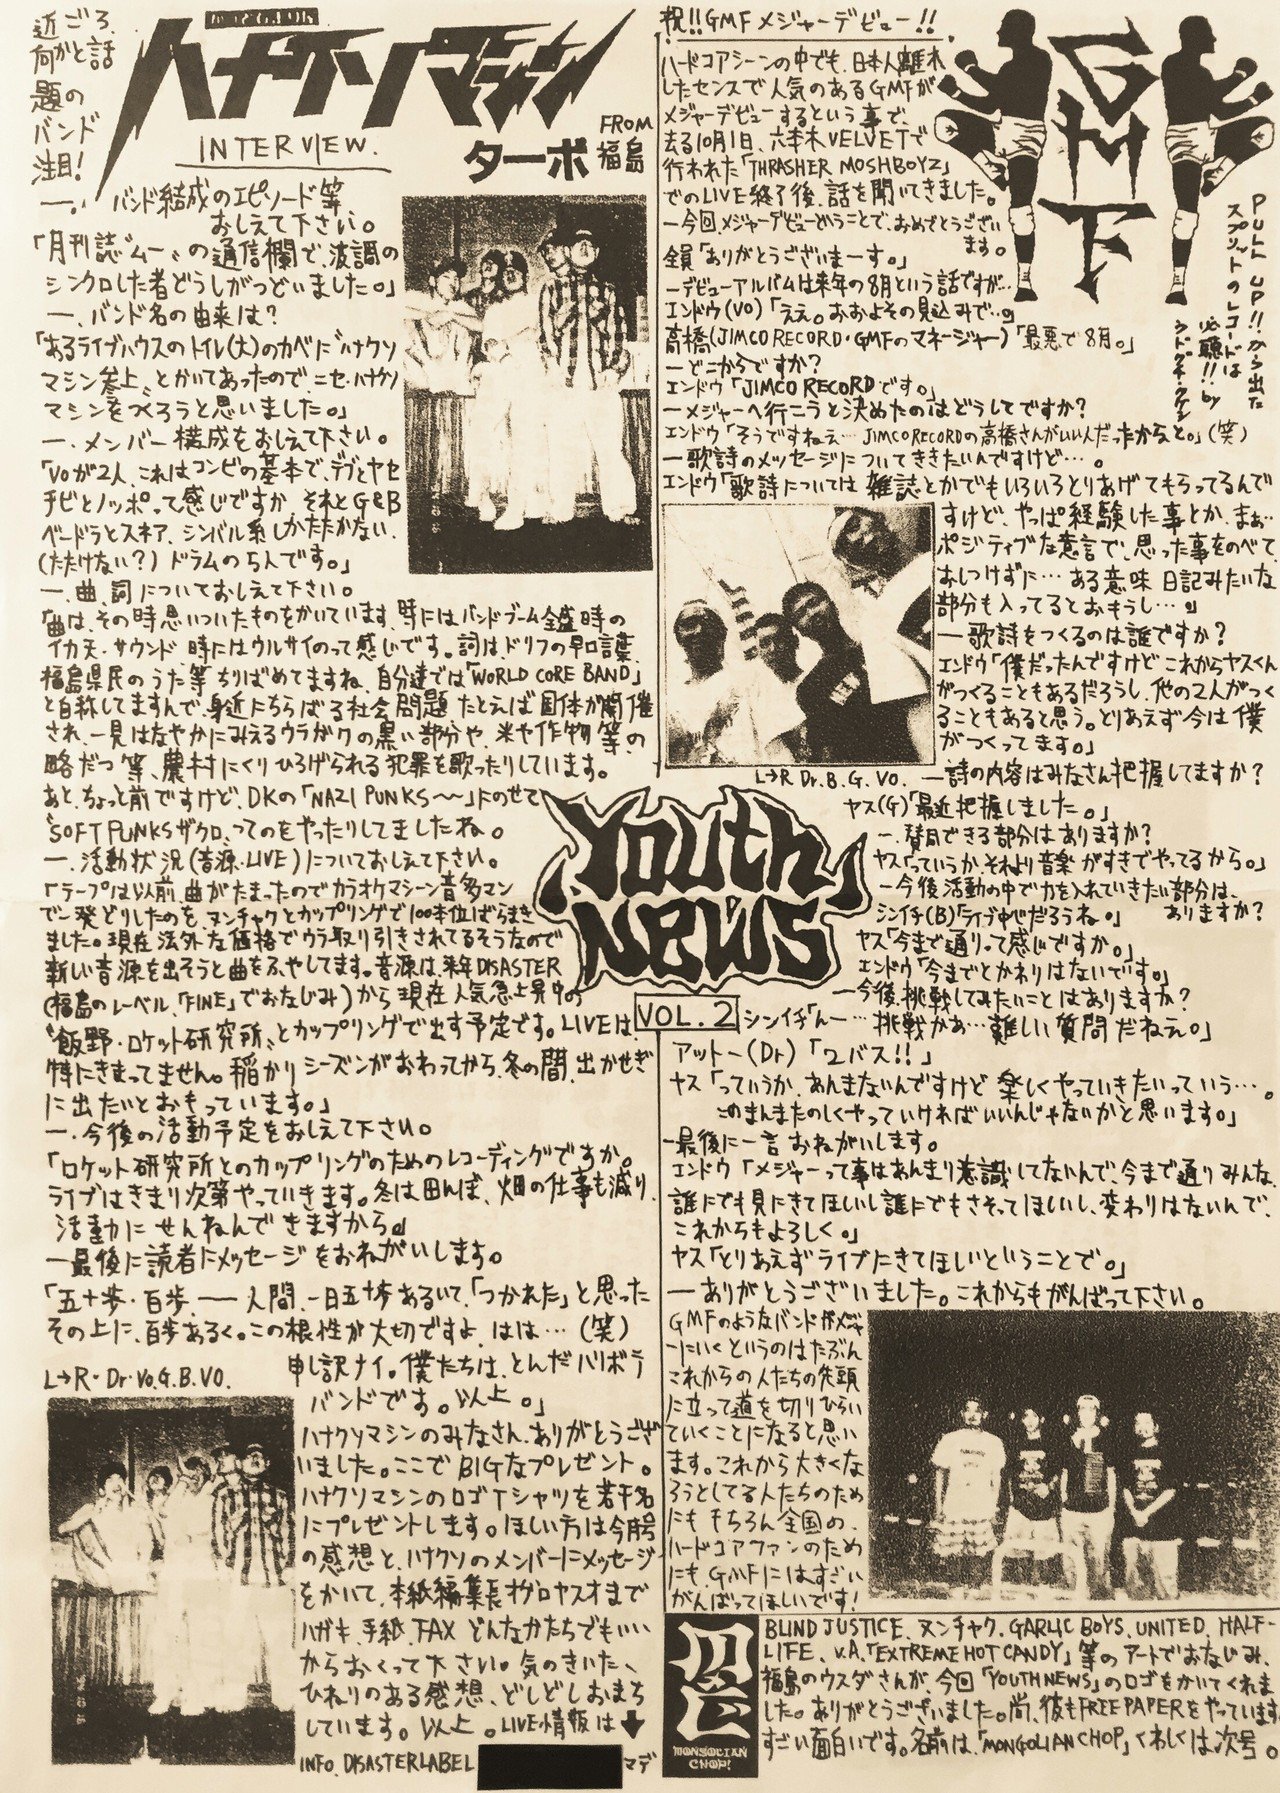 近ごろ、
何かと話
題の
バンド
注目!
ハナクソマシン
ターボ
INTERVIEW.
FROM
福島
一. バンド結成のエピソード等
おしえて下さい。
「月刊誌〝ムー〟の通信欄で、波調の
シンクロした者どうしがつどいました。」
一、バンド名の由来は?
「あるライブハウスのトイレ(大)のカベに〝ハナクソ
マシン参上〟とかいてあったのでニセ・ハナクソ
マシンをつくろうと思いました。」
一. メンバー構成をおしえて下さい。
「Voが2人、これはコンビの基本で、デブとヤセ
チビとノッポって感じですか、それとG&B
ベードラとスネア、シンバル系しかたたかない、
(たたけない?)ドラムの5人です。」
一、曲、詞についておしえて下さい。
「曲は、その時思いついたものをかいています、時にはバンドブーム全盛時の
イカ天・サウンド 時にはウルサイのって感じです。詞はドリフの早口言葉、
福島県民のうた等ちりばめてますね、自分達では「WORLD CORE BAND」
と自称してますんで、身近にちらばる社会問題 たとえば国体が開催
され、一見はなやかにみえるウラガワの黒い部分や、米や作物等の
略だつ等、農村にくりひろげられる犯罪を歌ったりしています。
あと、ちょっと前ですけど、DKの「NAZI PUNKS〜〜」にのせて
〝SOFT PUNKSザクロ〟ってのをやったりしてましたね。
一. 活動状況(音源・LIVE)についておしえて下さい。
「テープは以前、曲がたまったのでカラオケマシーン音多マン
で一発どりしたのを、ヌンチャクとカップリングで100本位ばらまき
ました。現在法外な価格でウラ取り引きされてるそうなので
新しい音源を出そうと曲をふやしてます。音源は、来年DISASTER
(福島のレーベル、「FINE」でおなじみ)から現在人気急上昇中の
〝飯野・ロケット研究所〟とカップリングで出す予定です。LIVEは、
特にきまってません。稲かりシーズンがおわってから、冬の間、出かせぎ
に出たいとおもっています。」
一. 今後の活動予定をおしえて下さい。
「ロケット研究所とのカップリングのためのレコーディングですか。
ライブはきまり次第やっていきます。冬は田んぼ、畑の仕事も減り、
活動にせんねんできますから。」
一最後に読者にメッセージをおねがいします。
「五十歩・百歩、── 人間、一日五十歩あるいて、「つかれた」と思った
その上に、百歩あるく。この根性が大切ですよ、はは…(笑)
申し訳ナイ。僕たちは、とんだバリボテ
バンドです。以上。」
L→R・Dr・Vo,G.B.VO.
ハナクソマシンのみなさん、ありがとうござ
いました。ここでBIGなプレゼント。
ハナクソマシンのロゴTシャツを若干名
にプレゼントします。ほしい方は今月号
の感想と、ハナクソのメンバーにメッセージ
をかいて、本紙編集長オグロヤスオまで
ハガキ、手紙、FAX どんなかたちでもいい
からおくって下さい。気のきいた、
ひねりのある感想、どしどしおまち
しています。以上。LIVE情報は↓
INFO. DISASTER LABEL
マデ
祝!!GMFメジャーデビュー!!
GMF
ハードコアシーンの中でも、日本人離れ
したセンスで人気のあるGMFが
メジャーデビューするという事で、
去る10月1日、六本木VELVETで
行われた「THRASHER MOSHBOYZ」
でのLIVE終了後、話を聞いてきました。
一今回メジャーデビューということで、おめでとうござい
ます。
全員「ありがとうございまーす。」
一デビューアルバムは来年の8月という話ですが…
エンドウ(VO)「ええ。おおよその見込みで…。」
高橋(JIMCO RECORD・GMFのマネージャー)「最悪で8月。」
一どこからですか?
エンドウ「JIMCO RECORDです。」
一メジャーへ行こうと決めたのはどうしてですか?
エンドウ「そうですねぇ… JIMCO RECORDの高橋さんがいい人だったからと。」(笑)
一歌詩のメッセージについてききたいんですけど…。
エンドウ「歌詩については 雑誌とかでもいろいろとりあげてもらってるんで
すけど、やっぱ経験した事とか、まぁ…
ポジティブな意言で、思った事をのべて、
おしつけずに… ある意味 日記みたいな
部分も入ってるとおもうし…。」
一歌詩をつくるのは誰ですか?
エンドウ「僕だったんですけどこれからヤスくん
がつくることもあるだろうし、他の2人がつく
ることもあると思う。とりあえず今は僕
がつくってます。」
L→R Dr.B.G.VO.
一詩の内容はみなさん把握してますか?
ヤス(G)「最近把握しました。」
一. 賛同できる部分はありますか?
ヤス「っていうか、それより音楽がすきでやってるから。」
一今後活動の中で力を入れていきたい部分は、
ありますか?
シンイチ(B)「ライブ中心だろうね。」
ヤス「今まで通りって感じですか。」
エンドウ「今までとかわりはないです。」
一今後、挑戦してみたいことはありますか?
シンイチ「ん一… 挑戦かぁ… 難しい質問だねぇ。」
アットー(Dr)「2バス!!」
ヤス「っていうか、あんまないんですけど 楽しくやっていきたいっていう…。
このまんまたのしくやっていければいいんじゃないかと思います。」
一最後に一言おねがいします。
エンドウ「メジャーって事はあんまり意識してないんで、今まで通りみんな、
誰にでも見にきてほしいし誰にでもさそってほしいし、変わりはないんで、
これからもよろしく。」
ヤス「とりあえずライブにきてほしいということで。」
一ありがとうございました。これからもがんばって下さい。
GMFのようなバンドがメジャ
ーにいくというのはたぶん
これからの人たちの先頭
に立って道を切りひらい
ていくことになると思い
ます。これから大きくな
ろうとしてる人たちのため
にももちろん全国の、
ハードコアファンのため
にも、GMFにはすごい
がんばってほしいです!
PULL UP!!から出た
スプリットのレコードは
必聴!! by
Youth
News
VOL.2
MONGOLIAN
CHOP!
BLIND JUSTICE、ヌンチャク、GARLIC BOYS、UNITED、HALF-
LIFE、V.A.「EXTREME HOT CANDY」等のアートでおなじみ、
福島のウスダさんが、今回「YOUTH NEWS」のロゴをかいてくれま
した。ありがとうございました。尚、彼もFREE PAPERをやっています
すごい面白いです。名前は、「MONGOLIAN CHOP」くわしくは次号。